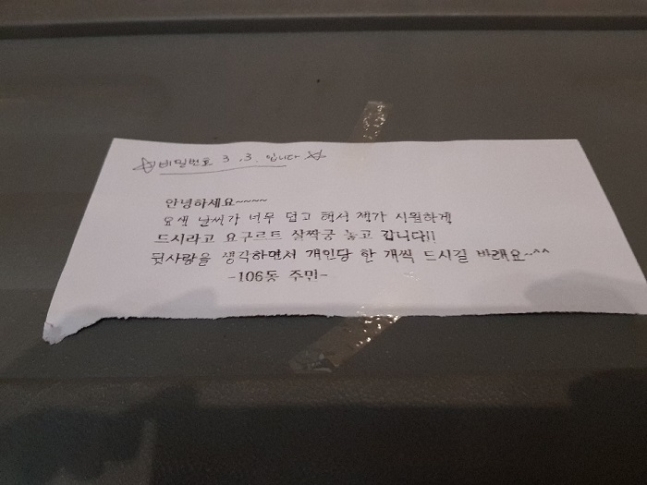 ☆비밀번호 3, 3 입니다☆
안녕하세요~~~~
요새 날씨가 너무 덥고 해서 제가 시원하게
드시라고 요구르트 살짝쿵 놓고 갑니다!!
뒷사람을 생각하면서 개인당 한 개씩 드시길 바래요~^^
-106동 주민-